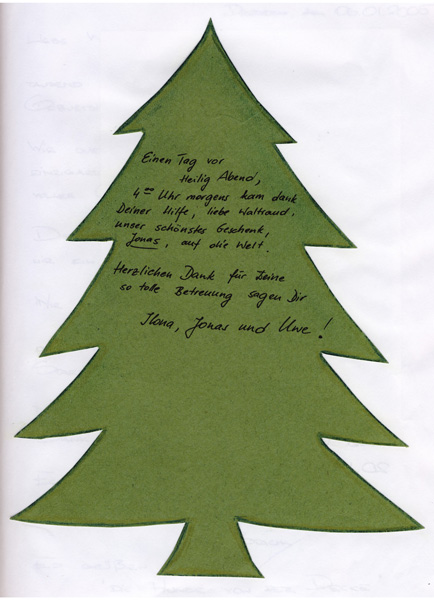 Einen Tag vor
Heilig Abend,
4⁰⁰ Uhr morgens kam dank
Deiner Hilfe, liebe Waltraud,
unser schönstes Geschenk,
Jonas, auf die Welt.
Herzlichen Dank für Deine
so tolle Betreuung sagen Dir
Ilona, Jonas und Uwe!